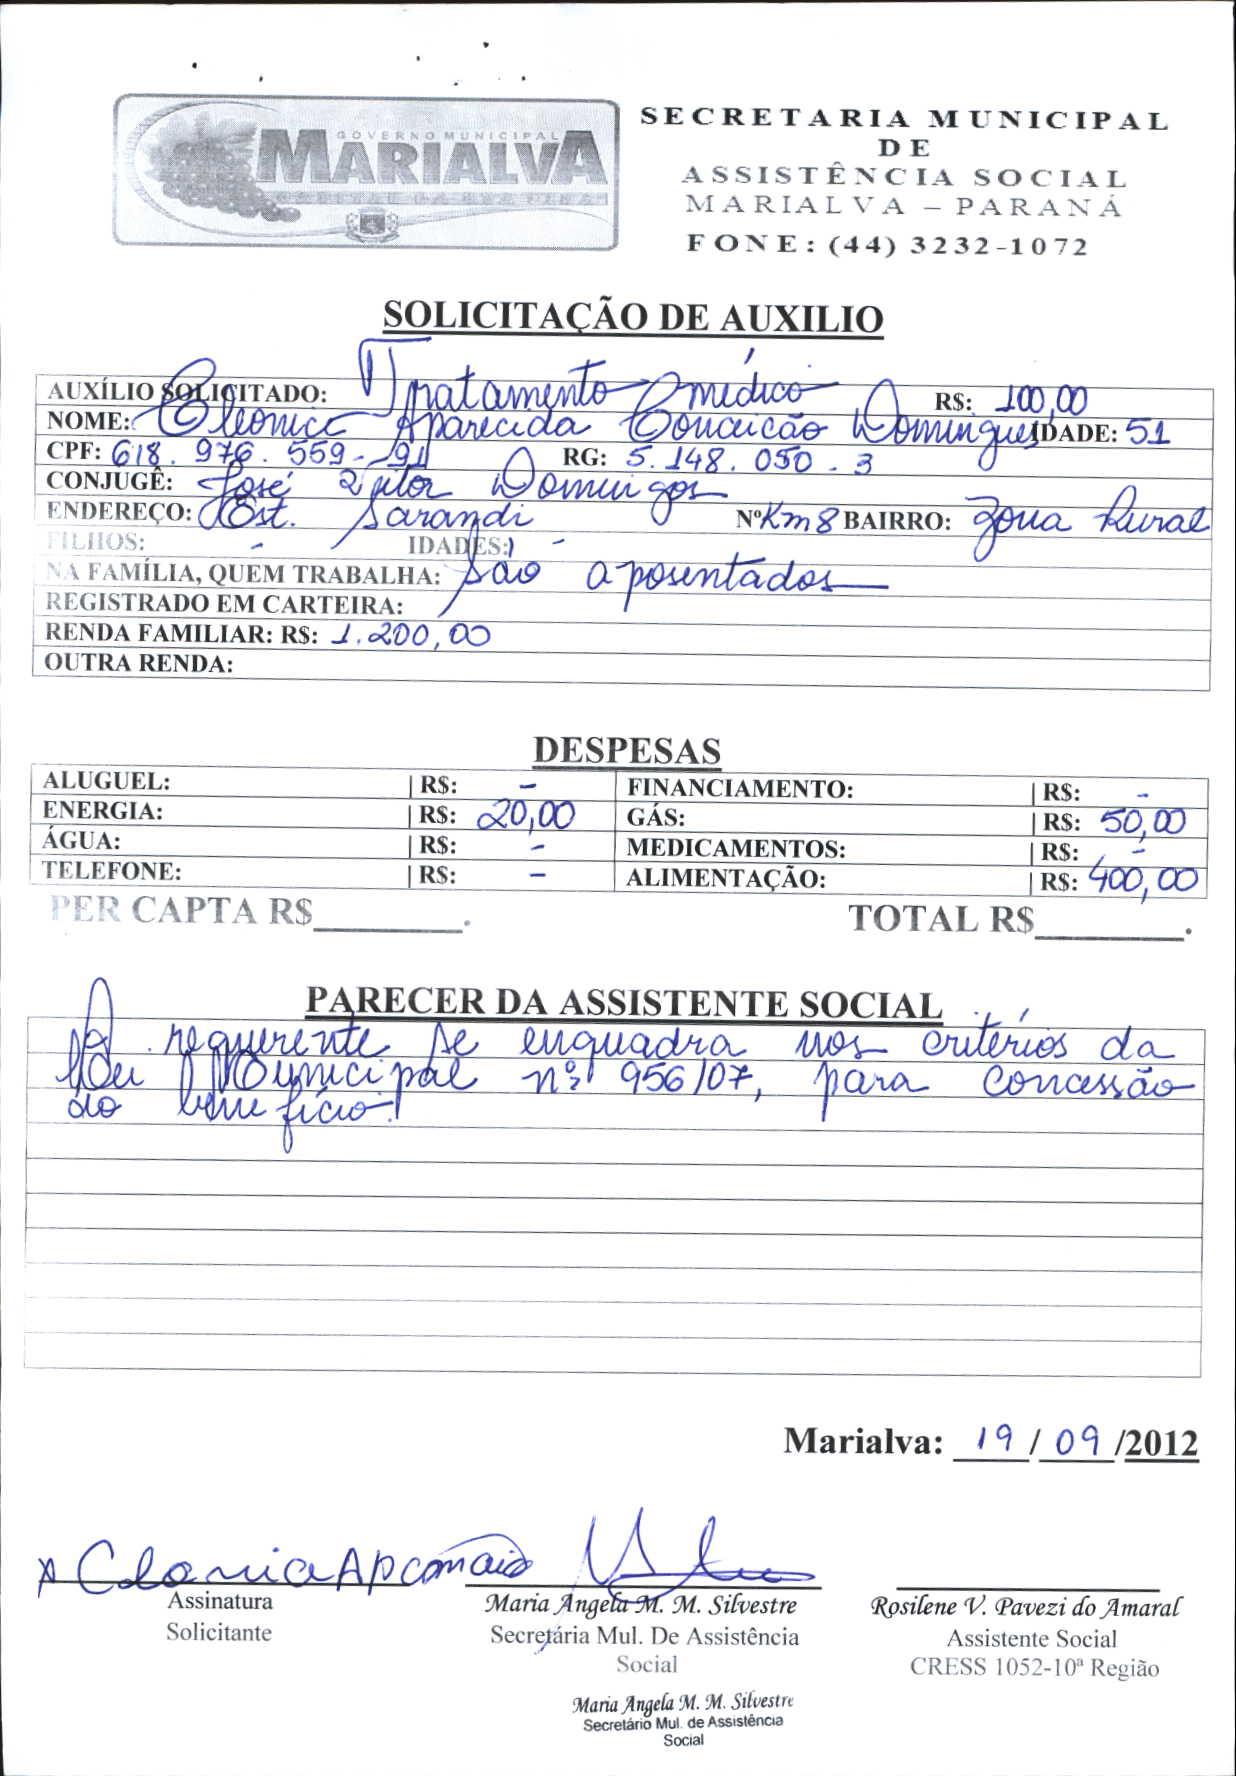 GOVERNO MUNICIPAL
MARIALVA
SECRETARIA MUNICIPAL
DE
ASSISTÊNCIA SOCIAL
MARIALVA – PARANÁ
FONE: (44) 3232-1072
SOLICITAÇÃO DE AUXILIO
AUXÍLIO SOLICITADO: Tratamento médico R$: 100,00
NOME: Cleonice Aparecida Conceicão Domingues IDADE: 51
CPF: 618.976.559-91 RG: 5.148.050-3
CONJUGÊ: José Vitor Domingos
ENDEREÇO: Est. Sarandi Nº Km 8 BAIRRO: Zona Rural
FILHOS: - IDADES: -
NA FAMÍLIA, QUEM TRABALHA: são aposentados
REGISTRADO EM CARTEIRA:
RENDA FAMILIAR: R$: 1.200,00
OUTRA RENDA:
DESPESAS
ALUGUEL: | R$: - FINANCIAMENTO: | R$: -
ENERGIA: | R$: 20,00 GÁS: | R$: 50,00
ÁGUA: | R$: - MEDICAMENTOS: | R$: -
TELEFONE: | R$: - ALIMENTAÇÃO: | R$: 400,00
PER CAPTA R$________. TOTAL R$________.
PARECER DA ASSISTENTE SOCIAL
A requerente se enquadra nos critérios da
Lei Municipal nº 956/07, para concessão
do benefício.
Marialva: 19/09/2012
Assinatura
Solicitante
Maria Angela M. M. Silvestre
Secretária Mul. De Assistência
Social
Maria Angela M. M. Silvestre
Secretário Mul. de Assistência
Social
Rosilene V. Pavezi do Amaral
Assistente Social
CRESS 1052-10ª Região